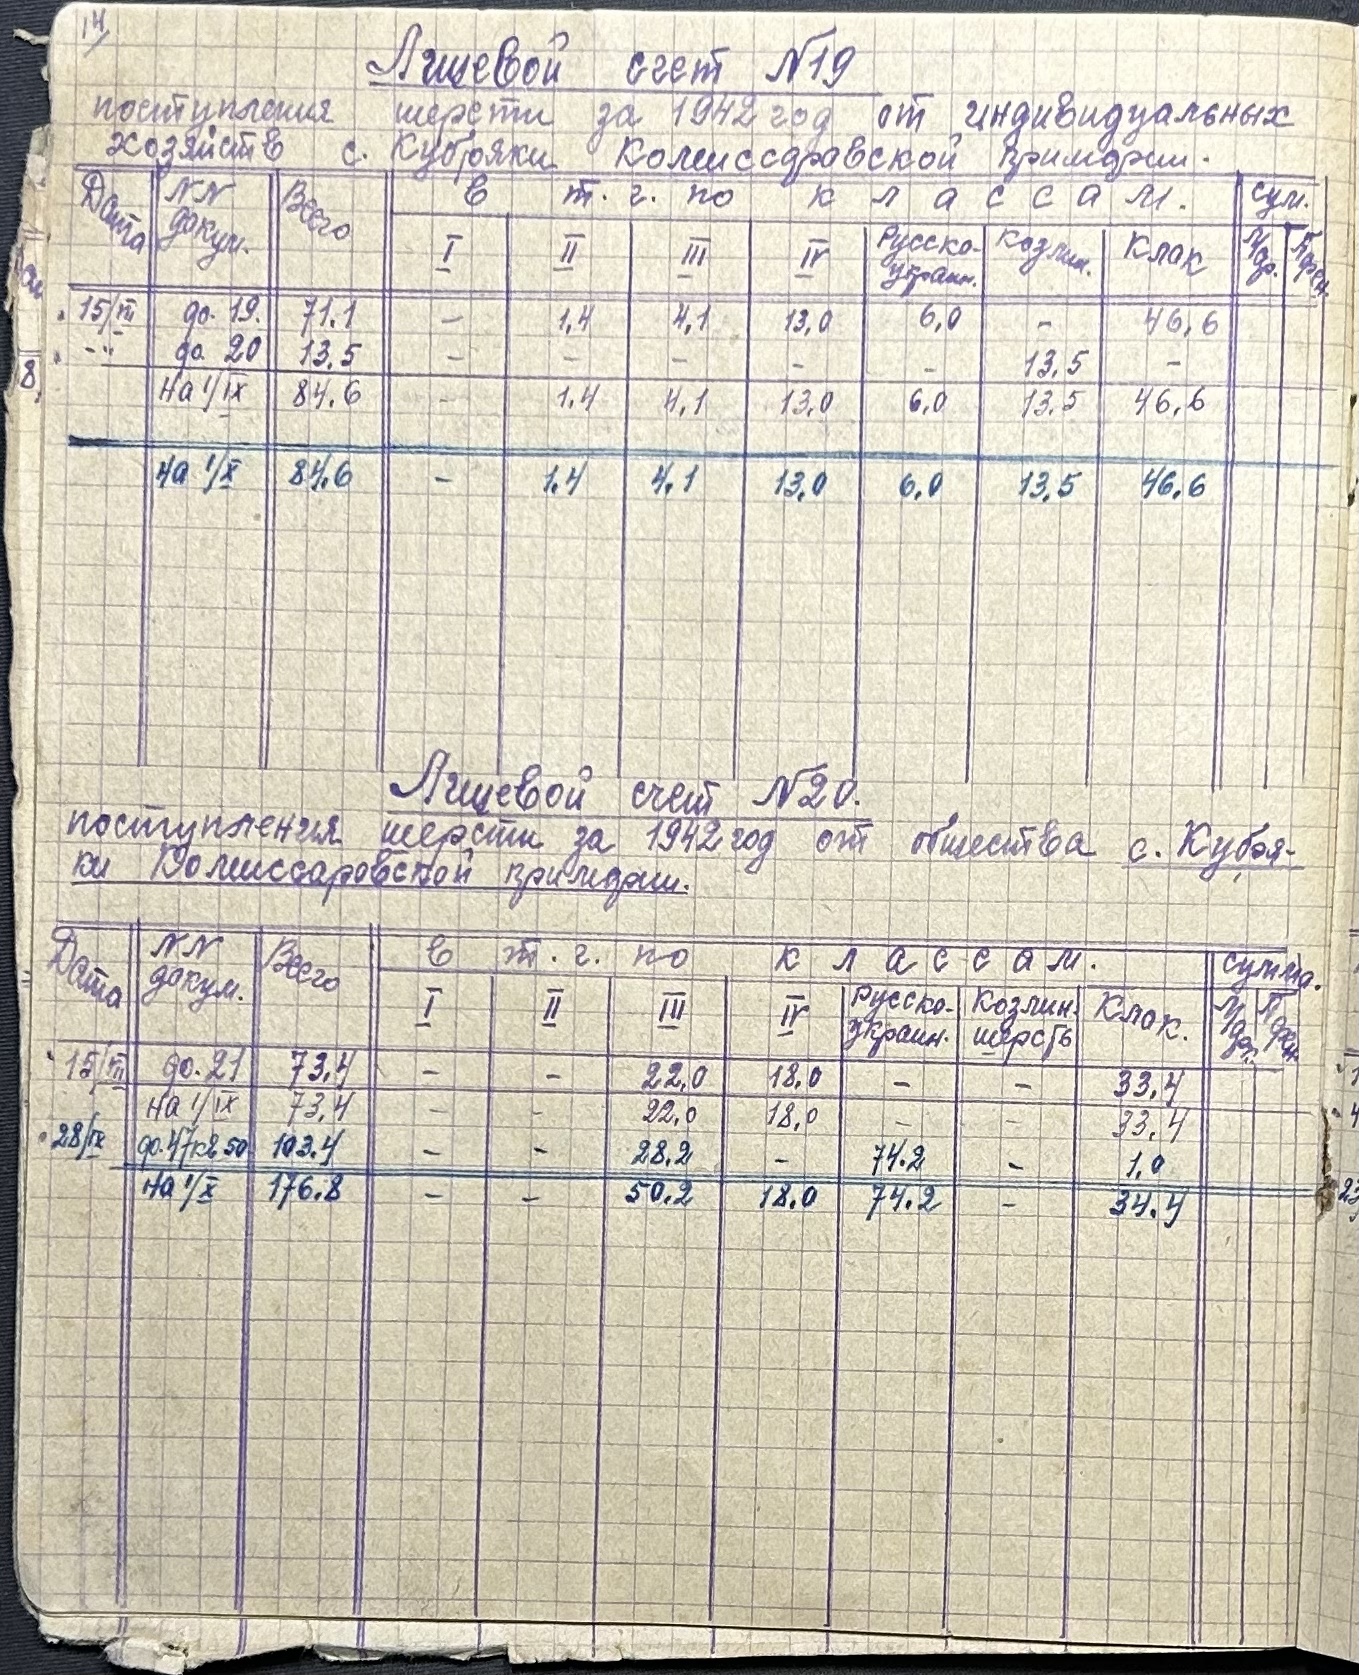 14
Лицевой счет N19
поступления шерсти за 1942 год от индивидуальных
хозяйств с. Кубряки Комиссаровской примарии.
Дата NN докум. Всего в т. г. по классам. сум.
I II III IV Русско-украин. Козлин. Клак
15/III до. 19. 71.1 - 1,4 4,1 13,0 6,0 - 46,6
-"- до. 20 13,5 - - - - - 13,5 -
на 1/IX 84.6 - 1.4 4,1 13,0 6,0 13,5 46,6
на 1/X 84,6 - 1.4 4.1 13,0 6,0 13,5 46,6
Лицевой счет N20.
поступления шерсти за 1942 год от общества с. Кубря-
ки Комиссаровской примарии.
Дата NN докум. Всего в т. г. по классам. сумма.
I II III IV Русско-украин. Козлин. шерсть Клак.
15/III до. 21 73,4 - - 22,0 18,0 - - 33,4
на 1/IX 73,4 - - 22,0 18,0 - - 33,4
28/IX до. 47 кв 50 103.4 - - 28.2 - 74.2 - 1,0
на 1/X 176.8 - - 50.2 18.0 74.2 - 34.4